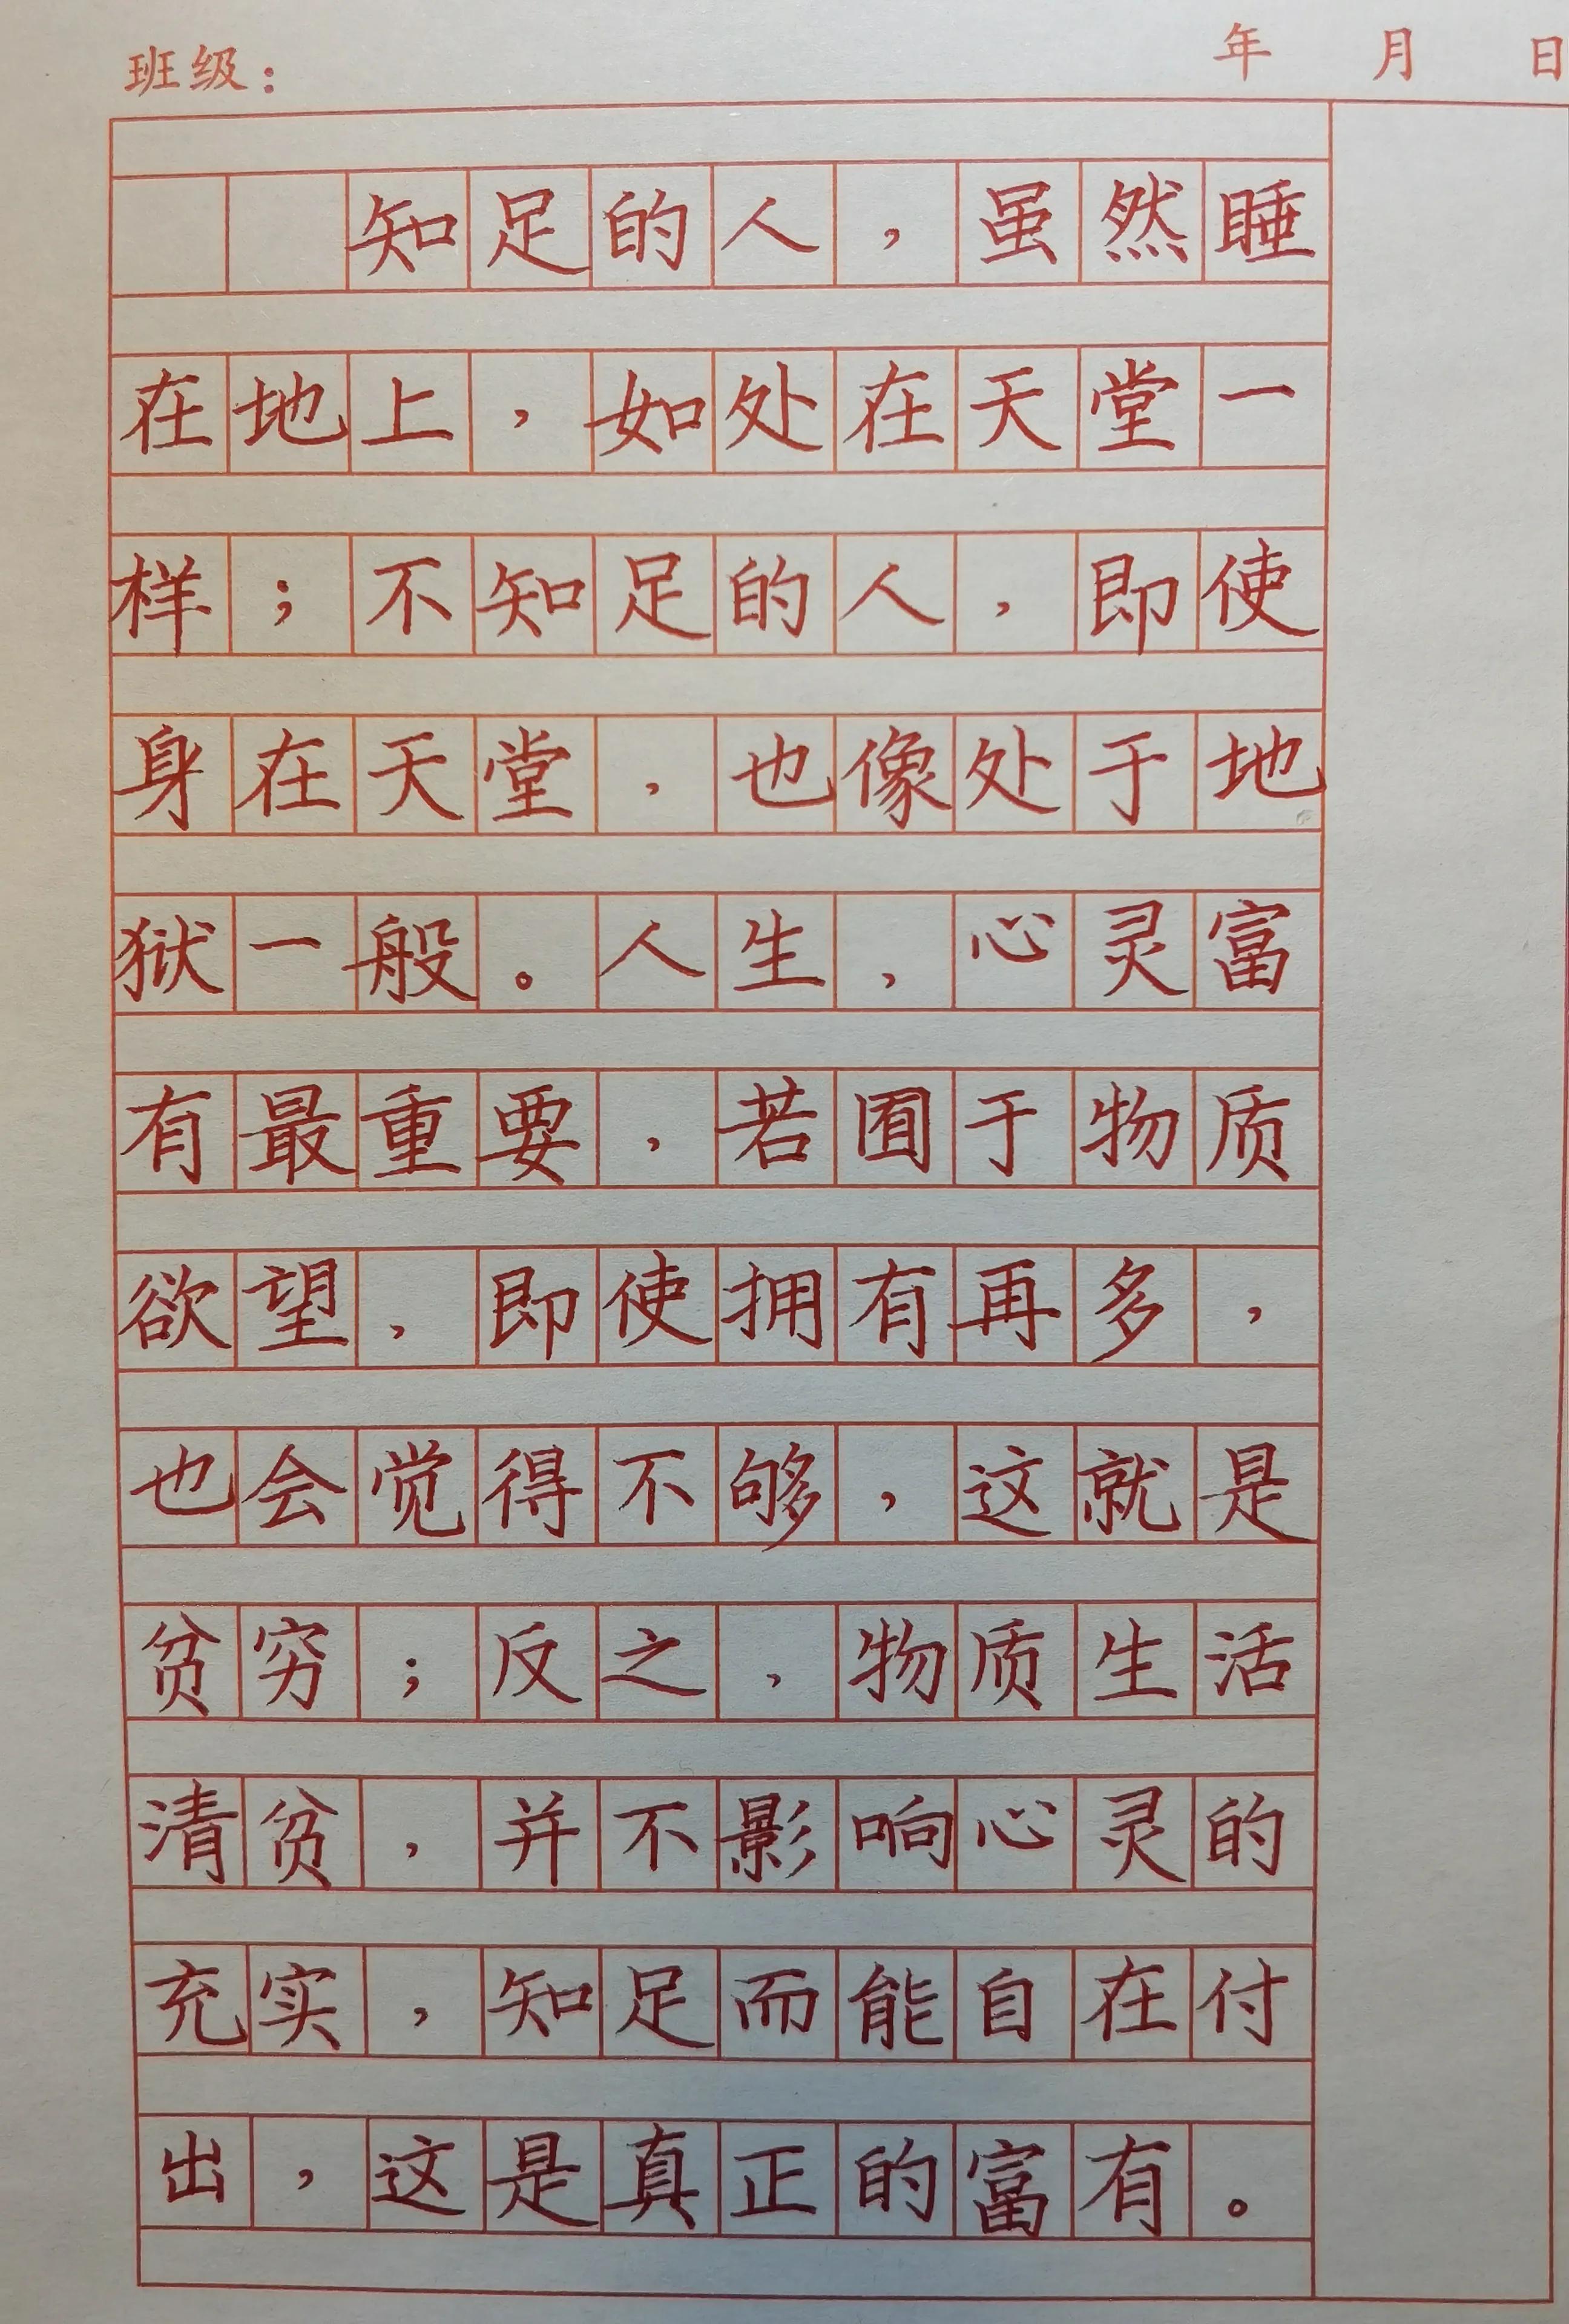 班级： 年 月 日
知足的人，虽然睡
在地上，如处在天堂一
样；不知足的人，即使
身在天堂，也像处于地
狱一般。人生，心灵富
有最重要，若囿于物质
欲望，即使拥有再多，
也会觉得不够，这就是
贫穷；反之，物质生活
清贫，并不影响心灵的
充实，知足而能自在付
出，这是真正的富有。